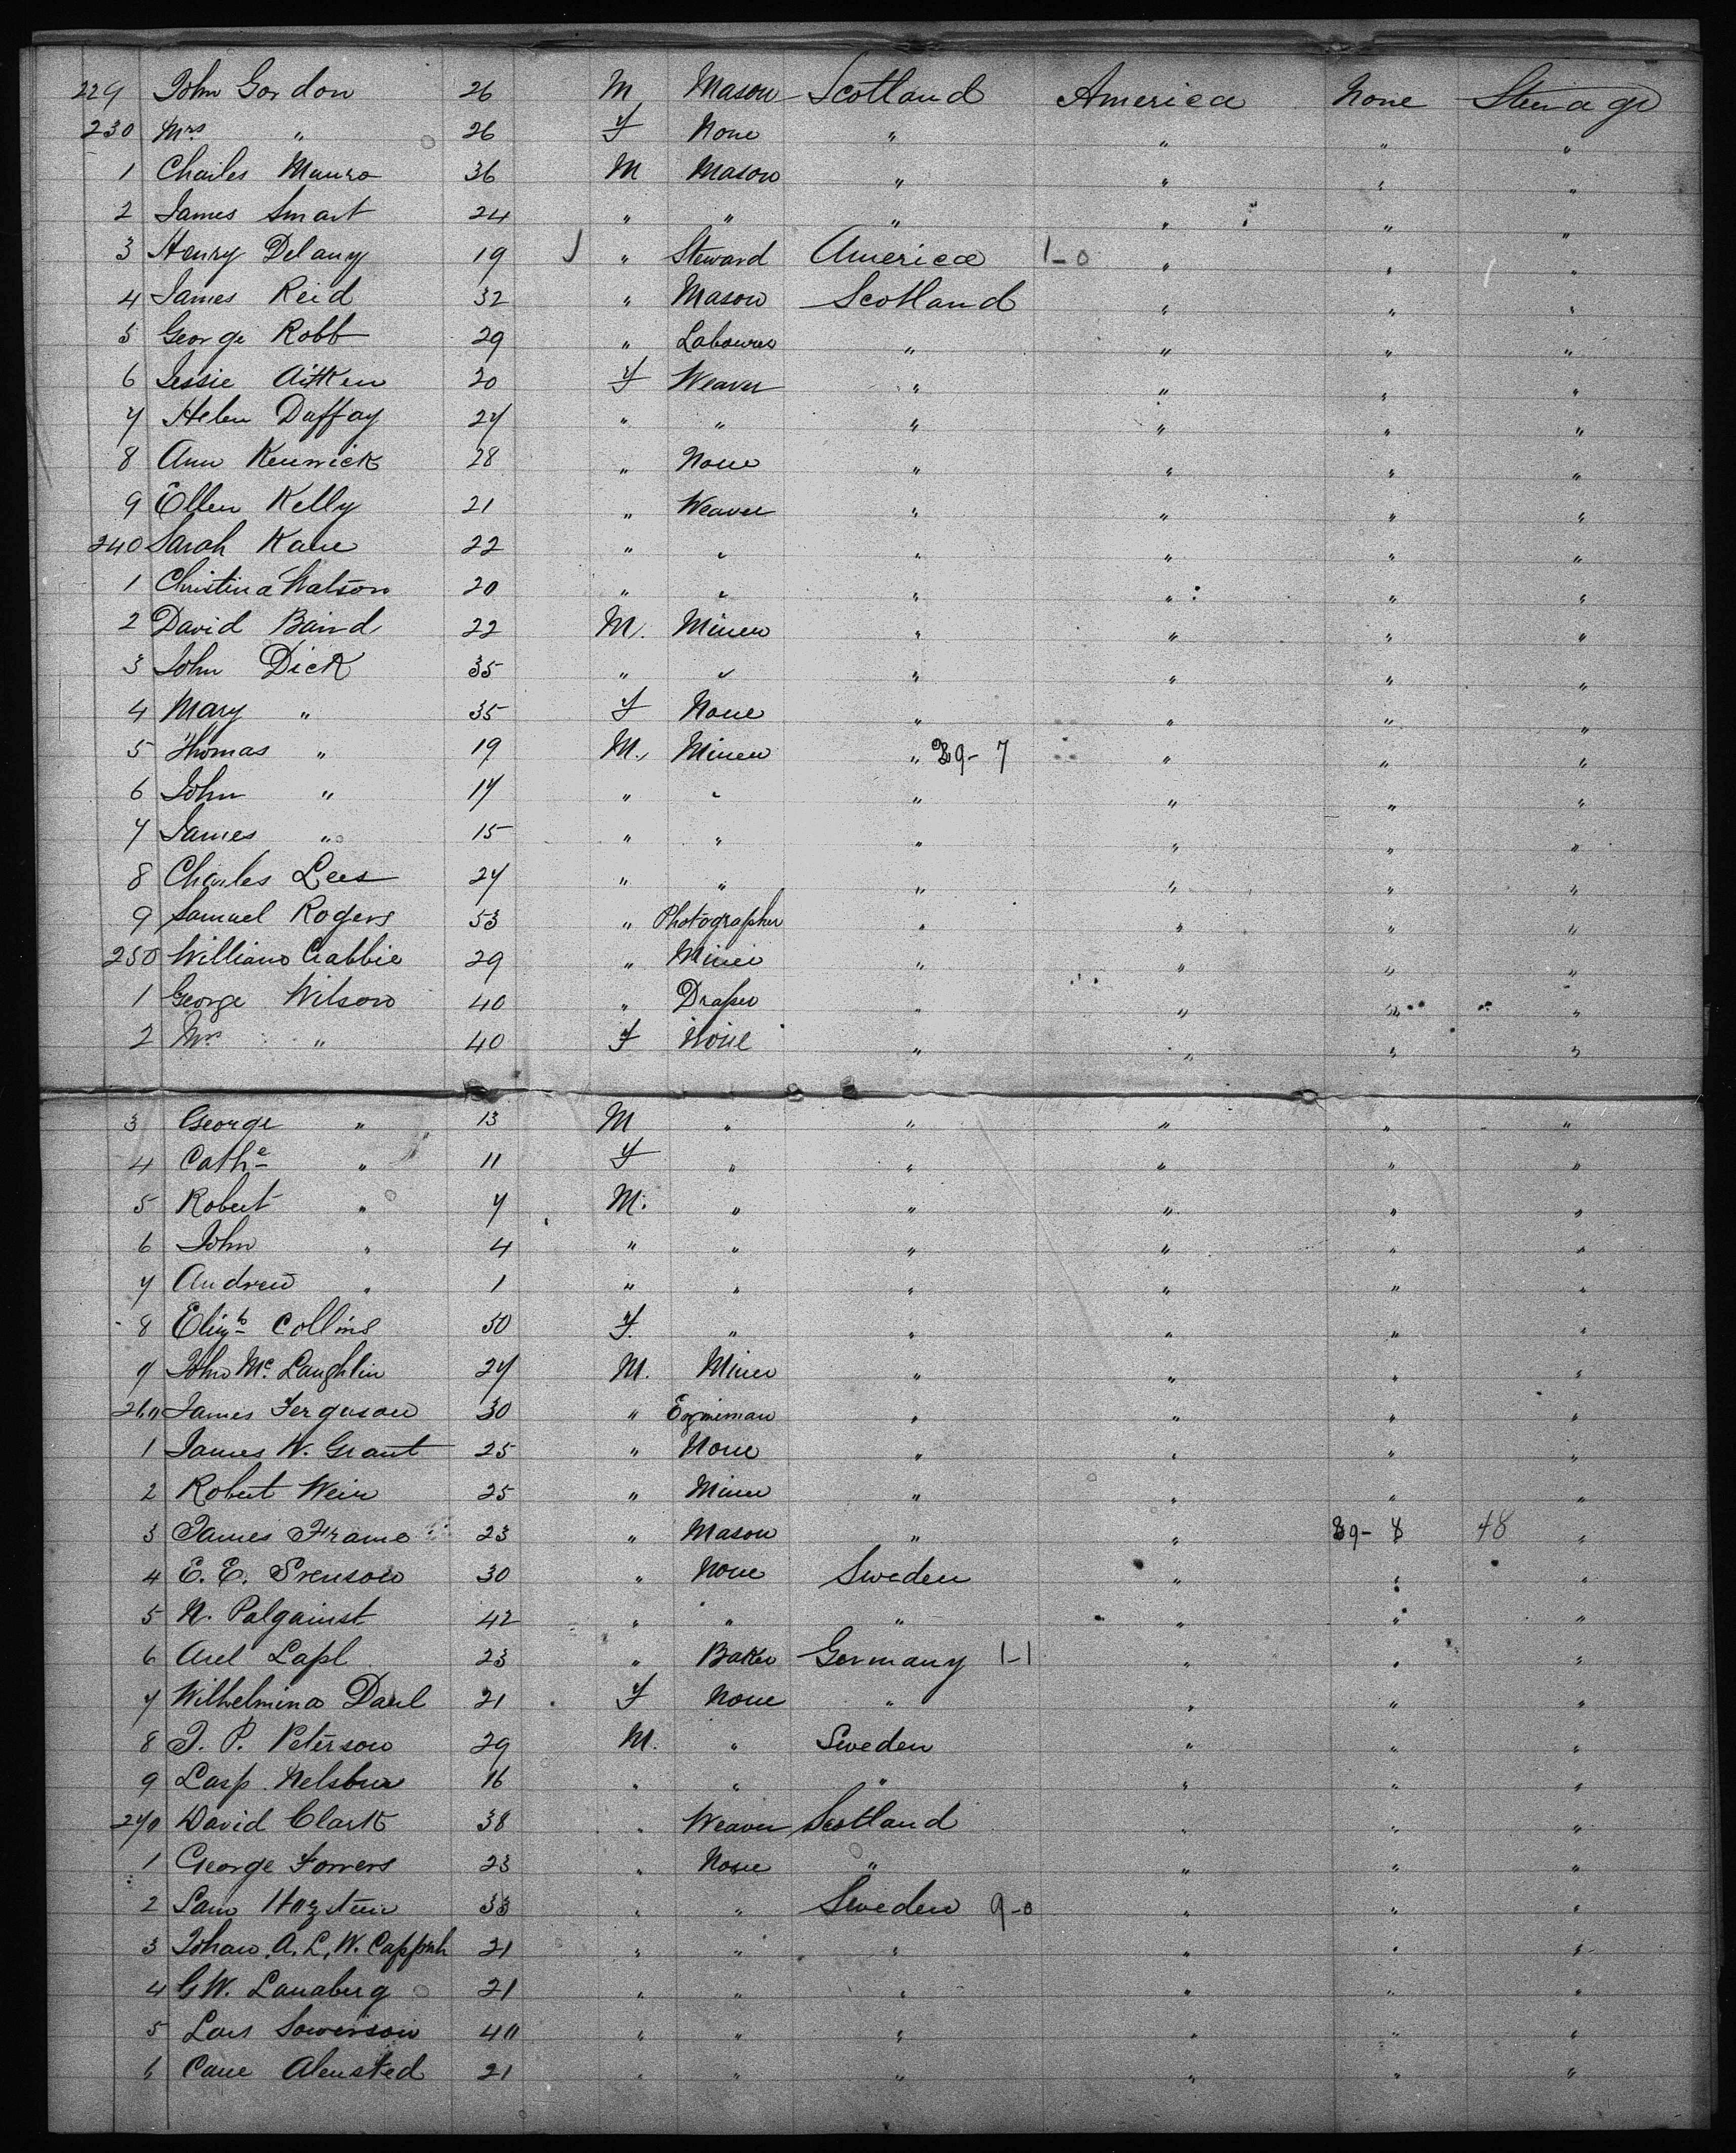 229 John Gordon 26 M Mason Scotland America None Steerage
230 Mrs " 26 F None " " " "
1 Charles Munro 36 M Mason " " " "
2 James Smart 24 " " " " " "
3 Henry Delany 19 " Steward America 1-0 " " "
4 James Reid 32 " Mason Scotland " " "
5 George Robb 29 " Labourer " " " "
6 Jessie Aitken 20 F Weaver " " " "
7 Helen Duffay 27 " " " " " "
8 Ann Kenwick 28 " None " " " "
9 Ellen Kelly 21 " Weaver " " " "
240 Sarah Kane 22 " " " " " "
1 Christina Watson 20 " " " " " "
2 David Baird 22 M. Miner " " " "
3 John Dick 35 " " " " " "
4 Mary " 35 F None " " " "
5 Thomas " 19 M. Miner " 29-7 " " "
6 John " 17 " " " " " "
7 James " 15 " " " " " "
8 Charles Lees 27 " " " " " "
9 Samuel Rogers 53 " Photographer " " " "
250 William Crabbie 29 " Miner " " " "
1 George Wilson 40 " Draper " " " "
2 Mrs " 40 F None " " " "
3 George " 13 M " " " " "
4 Cathe " 11 F " " " " "
5 Robert " 7 M. " " " " "
6 John " 4 " " " " " "
7 Andrew " 1 " " " " " "
8 Elizth Collins 50 F. " " " " "
9 John Mc Laughlin 27 M. Miner " " " "
260 James Ferguson 30 " Engineman " " " "
1 James W. Grant 25 " None " " " "
2 Robert Weir 25 " Miner " " " "
3 James Frame 23 " Mason " " 39-8 " 48 "
4 E. E. Svenson 30 " None Sweden " " "
5 N. Palgainst 42 " " " " " "
6 Axel Lapl 23 " Baker Germany 1-1 " " "
7 Wilhelmina Daul 21 F None " " " "
8 J. P. Peterson 29 M. " Sweden " " "
9 Lasp Nelsbur 16 " " " " " "
270 David Clark 38 " Weaver Scotland " " "
1 George Forrers 23 " None " " " "
2 Sam 33 " " Sweden 9-0 " " "
3 Johan. A. L. W. 21 " " " " " "
4 G W. Lanaberg 21 " " " " " "
5 Lars Sowerson 40 " " " " " "
6 Cane Alensted 21 " " " " " "